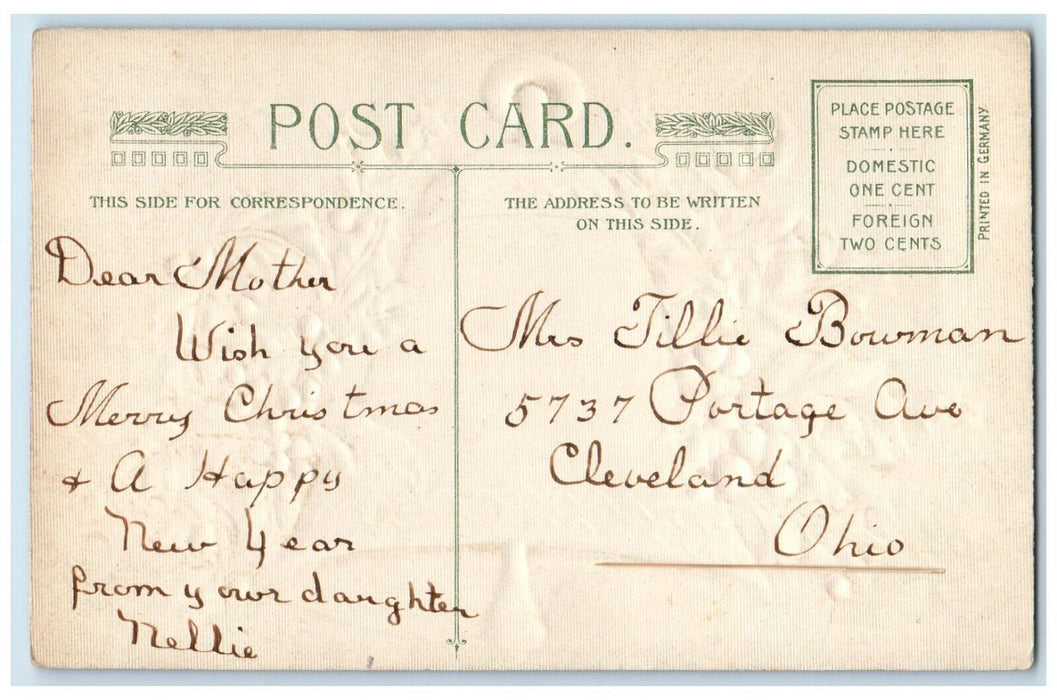 POST CARD.
PLACE POSTAGE
STAMP HERE
DOMESTIC
ONE CENT
FOREIGN
TWO CENTS
PRINTED IN GERMANY
THIS SIDE FOR CORRESPONDENCE.
THE ADDRESS TO BE WRITTEN
ON THIS SIDE.
Dear Mother
Wish you a
Merry Christmas
+ A Happy
New Year
from your daughter
Nellie
Mrs Tillie Bowman
5737 Portage Ave
Cleveland
Ohio